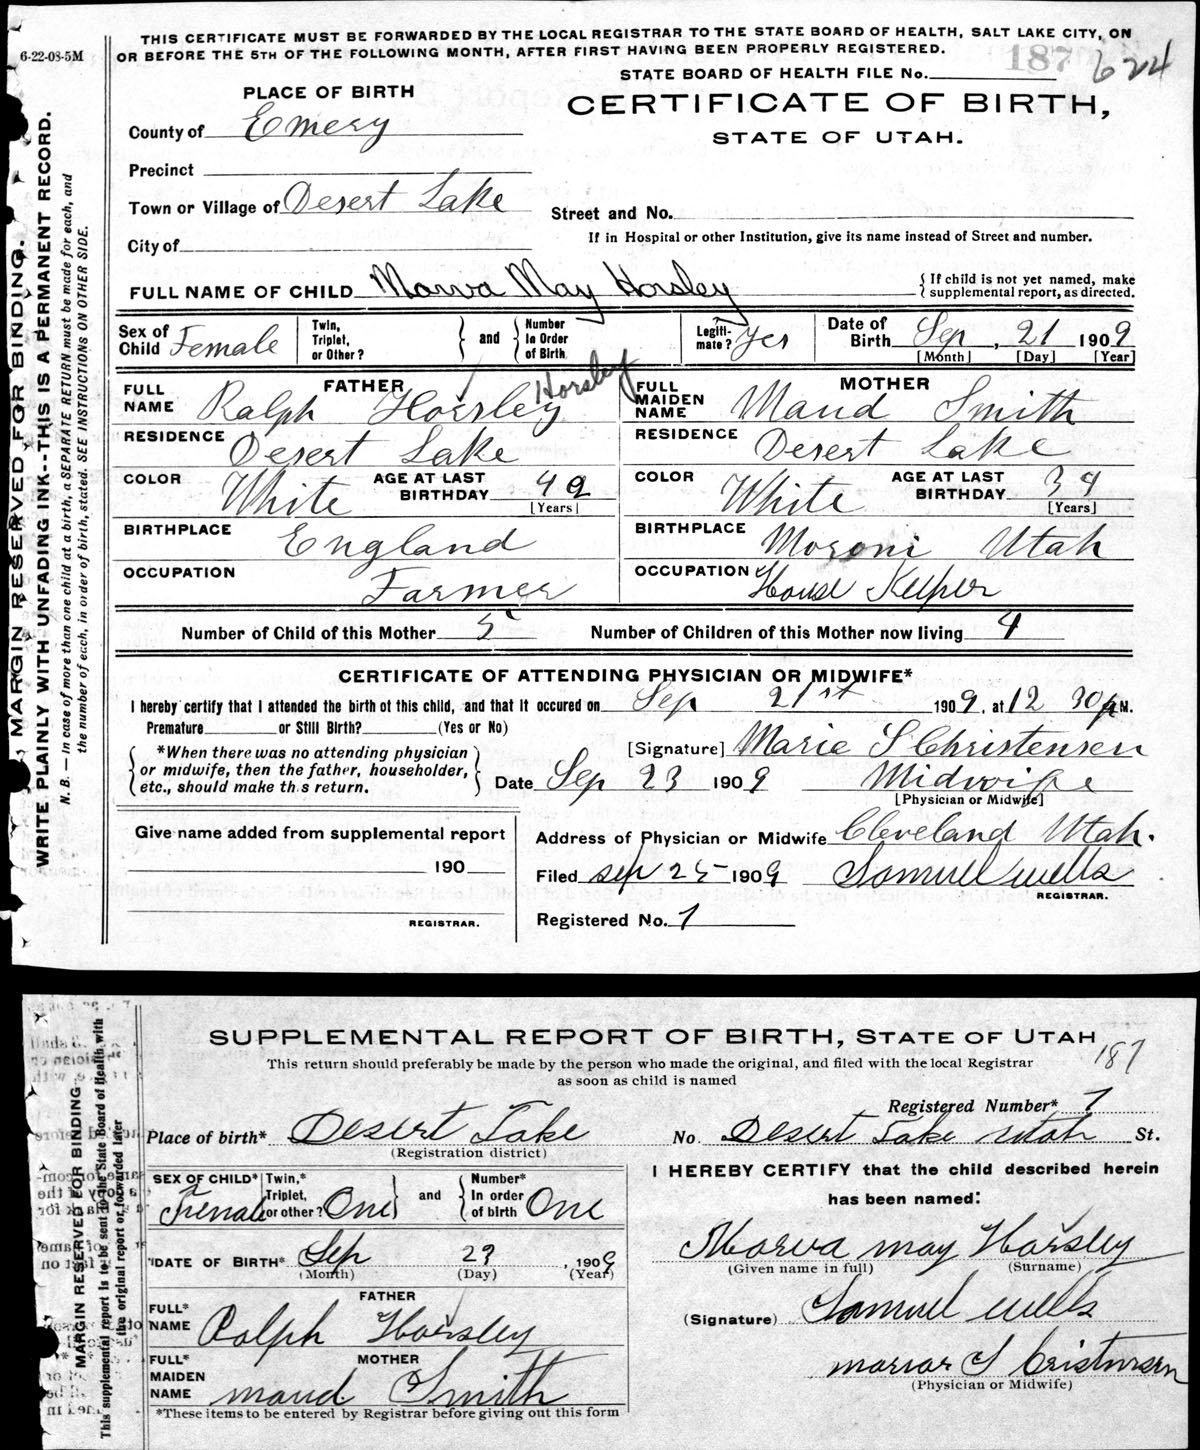 6-22-08-5M
THIS CERTIFICATE MUST BE FORWARDED BY THE LOCAL REGISTRAR TO THE STATE BOARD OF HEALTH, SALT LAKE CITY, ON
OR BEFORE THE 5TH OF THE FOLLOWING MONTH, AFTER FIRST HAVING BEEN PROPERLY REGISTERED.
187 624
STATE BOARD OF HEALTH FILE No.
PLACE OF BIRTH
CERTIFICATE OF BIRTH,
STATE OF UTAH.
County of Emery
Precinct
Town or Village of Desert Lake
Street and No.
City of
If in Hospital or other Institution, give its name instead of Street and number.
FULL NAME OF CHILD Marva May Horsley
{ If child is not yet named, make
supplemental report, as directed.
Sex of Child Female
Twin, Triplet, or Other?
and
Number In Order of Birth
Legiti-mate? Yes
Date of Birth Sep, 21 1909
[Month] [Day] [Year]
FATHER
FULL NAME Ralph Horsley Horsley
RESIDENCE Desert Lake
COLOR White AGE AT LAST BIRTHDAY 49
[Years]
BIRTHPLACE England
OCCUPATION Farmer
MOTHER
FULL MAIDEN NAME Maud Smith
RESIDENCE Desert Lake
COLOR White AGE AT LAST BIRTHDAY 39
[Years]
BIRTHPLACE Moroni Utah
OCCUPATION House Keeper
Number of Child of this Mother 5 Number of Children of this Mother now living 4
CERTIFICATE OF ATTENDING PHYSICIAN OR MIDWIFE*
I hereby certify that I attended the birth of this child, and that it occured on Sep 21st 1909, at 12 30 p M.
Premature or Still Birth? (Yes or No)
*When there was no attending physician
or midwife, then the father, householder,
etc., should make this return.
[Signature] Marie S Christensen
Date Sep 23 1909 Midwife
[Physician or Midwife]
Give name added from supplemental report
190
REGISTRAR.
Address of Physician or Midwife Cleveland Utah.
Filed sep 25 1909 Samuel Wells
REGISTRAR.
Registered No. 7
MARGIN RESERVED FOR BINDING.
WRITE PLAINLY WITH UNFADING INK--THIS IS A PERMANENT RECORD.
N. B. — In case of more than one child at a birth, a SEPARATE RETURN must be made for each, and
the number of each, in order of birth, stated. SEE INSTRUCTIONS ON OTHER SIDE.
SUPPLEMENTAL REPORT OF BIRTH, STATE OF UTAH
187
This return should preferably be made by the person who made the original, and filed with the local Registrar
as soon as child is named
Registered Number* 7
Place of birth* Desert Lake
(Registration district)
No. Desert Lake Utah St.
SEX OF CHILD* Female
Twin,* Triplet, or other? One
and
Number* In order of birth One
DATE OF BIRTH* Sep 23, 1909
(Month) (Day) (Year)
FATHER
FULL* NAME Ralph Horsley
MOTHER
FULL* MAIDEN NAME maud Smith
*These items to be entered by Registrar before giving out this form
I HEREBY CERTIFY that the child described herein
has been named:
Marva may Horsley
(Given name in full) (Surname)
(Signature) Samuel Wells
S Cristensen
(Physician or Midwife)
MARGIN RESERVED FOR BINDING
This supplemental report is to be sent to the State Board of Health with
the original report or forwarded later